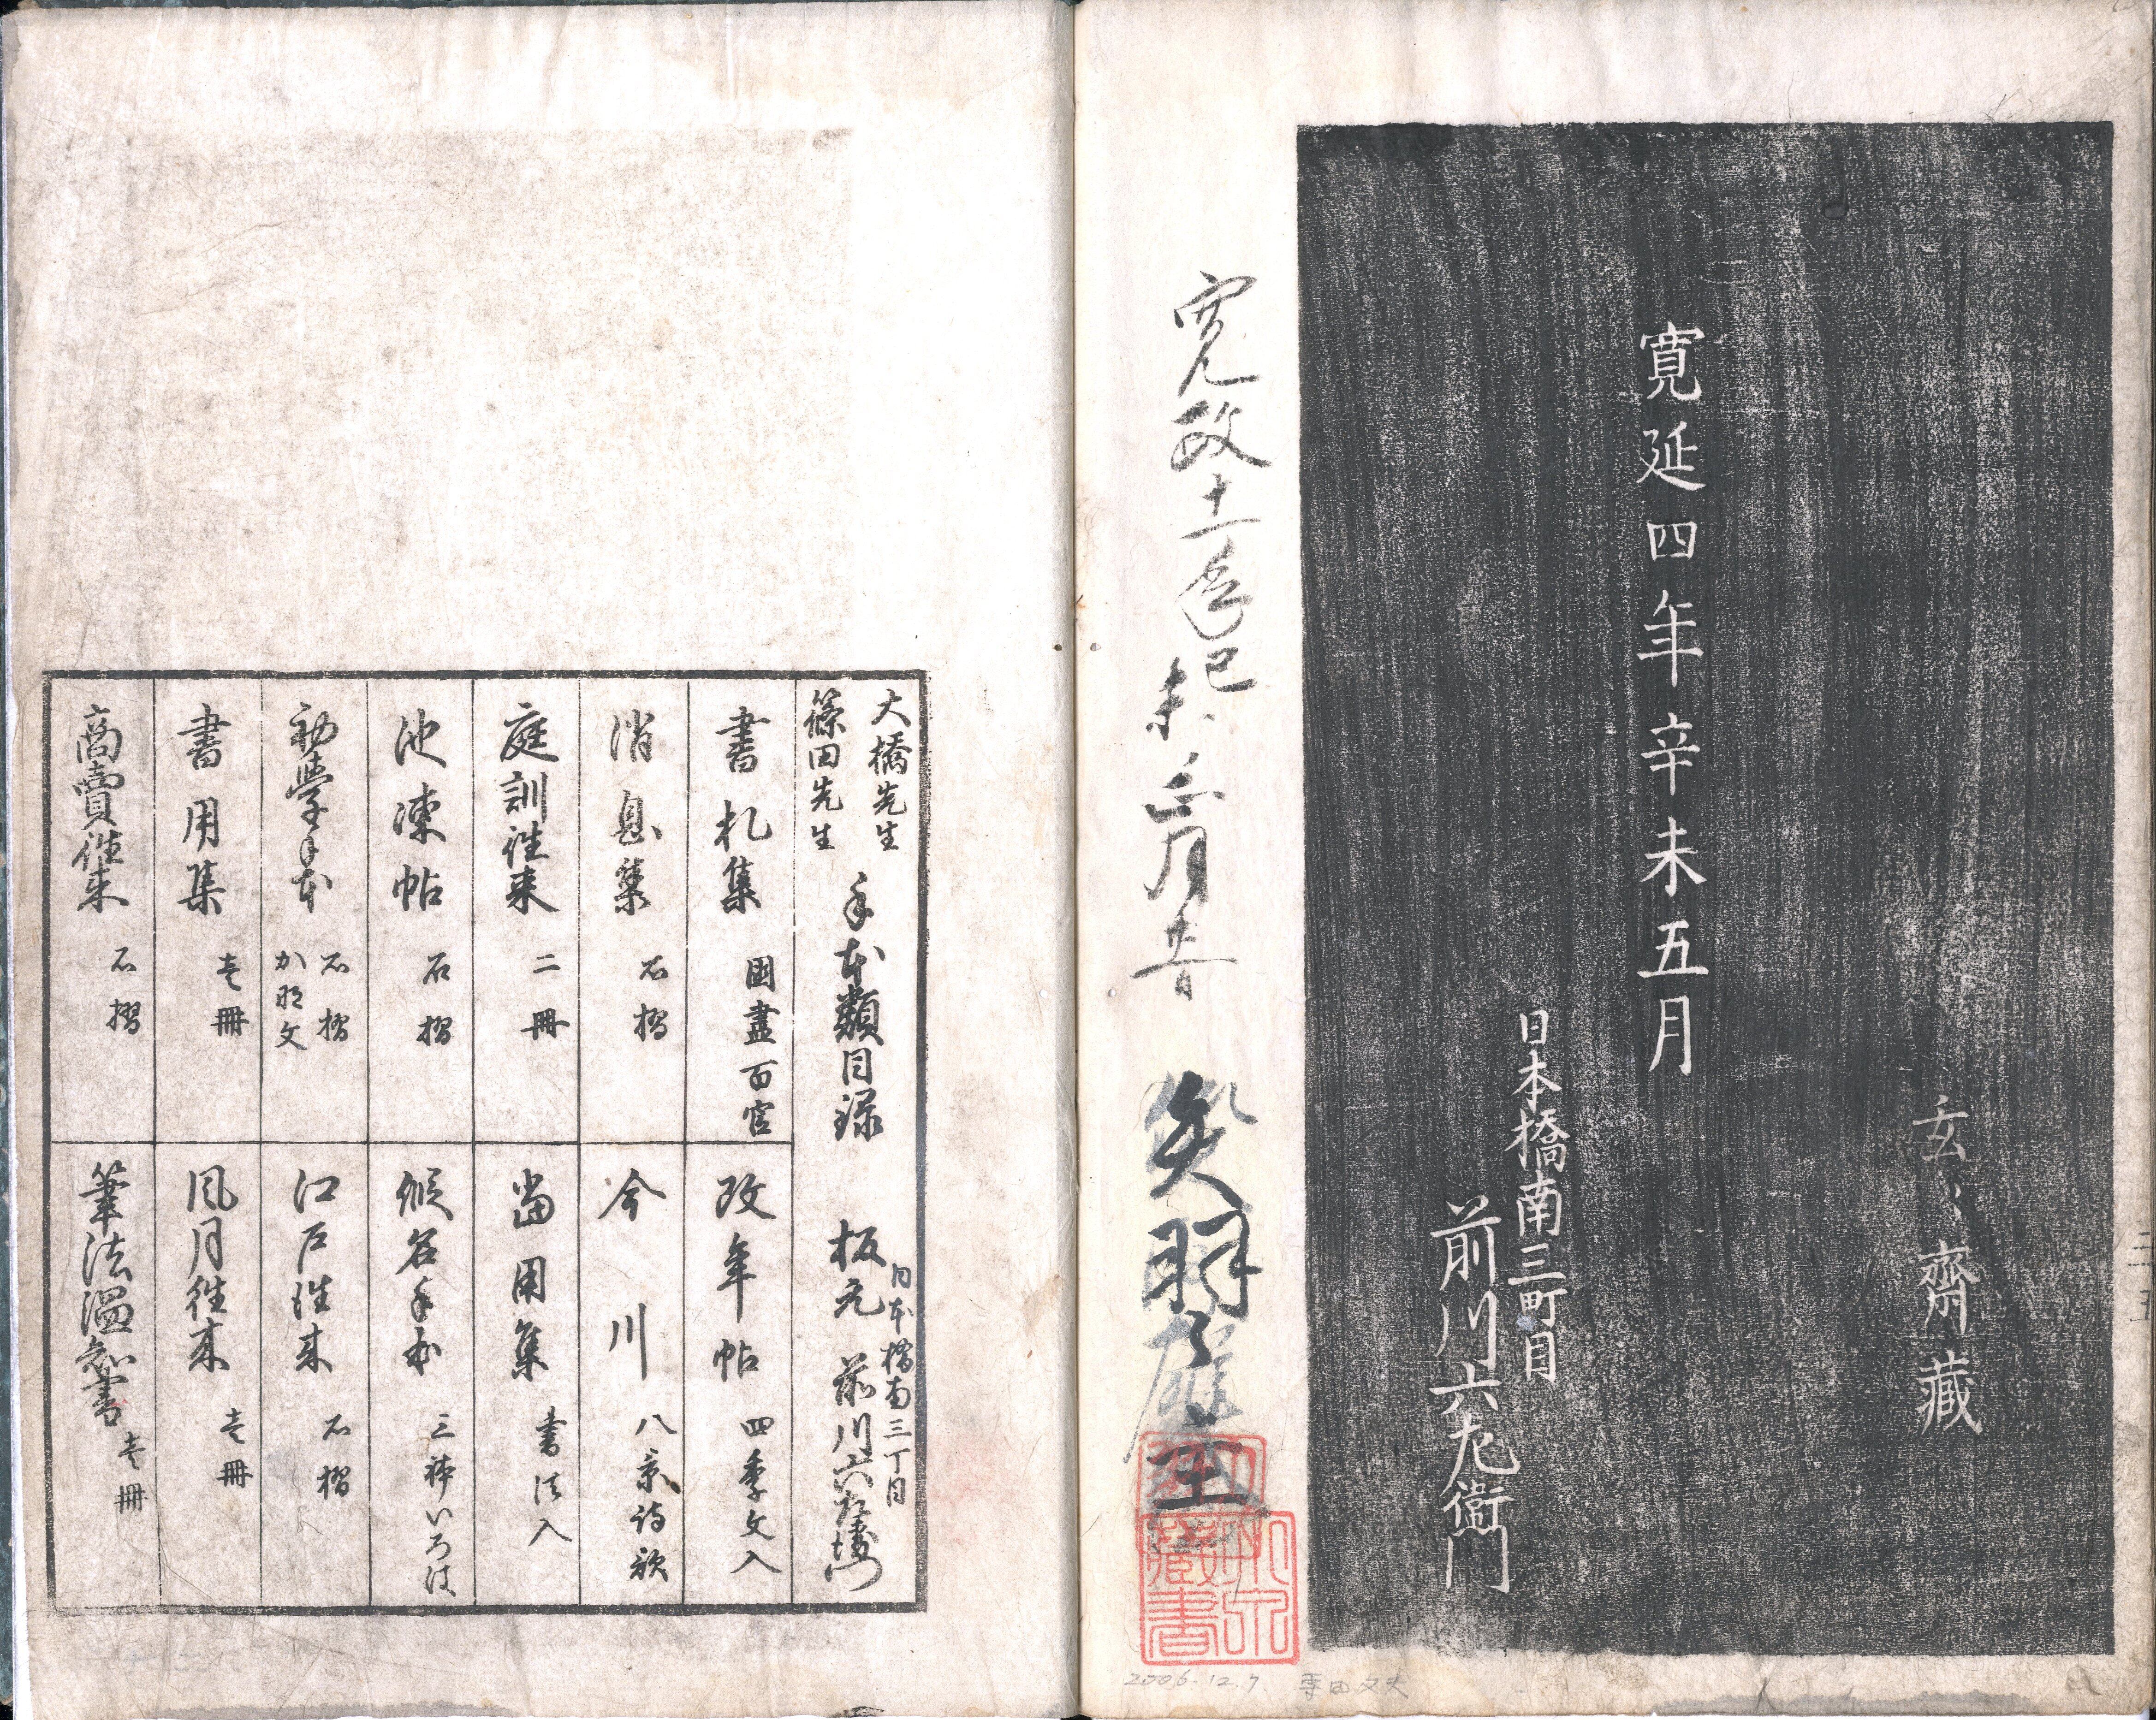 玄々齋藏
寛延四年辛未五月
日本橋南三町目
前川六左衛門
寛政十一年己未
月
矢羽
主
藏書
2006.12.7.
大橋先生
篠田先生
手本類目録
日本橋南三丁目
板元 前川六左衛門
書札集 國盡百官
消息集 石摺
庭訓往来 二冊
池凍帖 石摺
初學手本 石摺 かな文
書用集 壱冊
商賣往来 石摺
改年帖 四季文入
今川 八景詩歌
當用集 書法入
假名手本 三体いろは
江戸往来 石摺
風月往来 壱冊
筆法温知書 壱冊